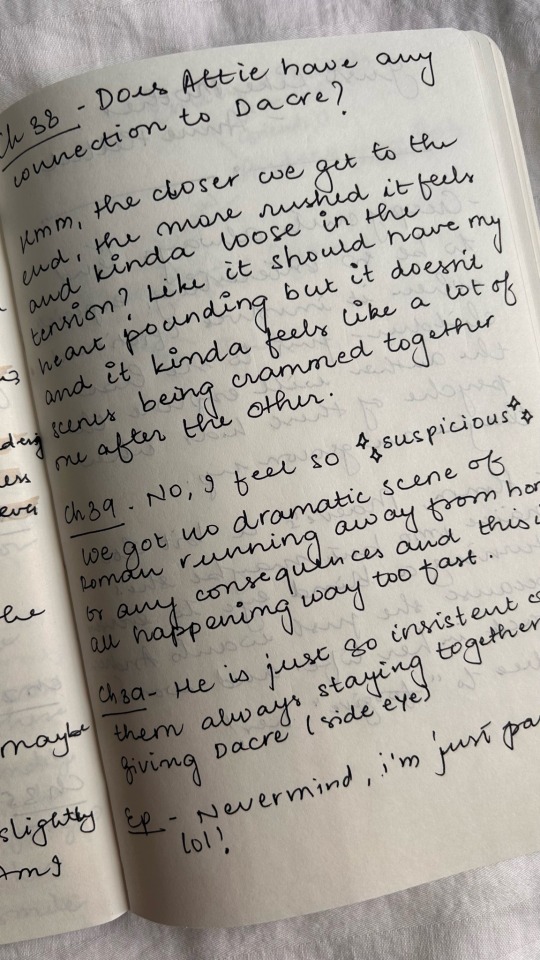 dering
ess
ever
the
maybe
slightly
Am I
Ch 38 - Does Attie have any
connection to Dacre?
Hmm, the closer we get to the
end, the more rushed it feels
and kinda loose in the
tension? Like it should have my
heart pounding but it doesn't
and it kinda feels like a lot of
scenes being crammed together
one after the other.
Ch 39 - No, I feel so suspicious
We got no dramatic scene of
Roman running away from hom
or any consequences and this i
all happening way too fast.
Ch 39 - He is just so insistent o
them always staying together
giving Dacre (side eye)
Ep - Nevermind, i'm just pa
lol!